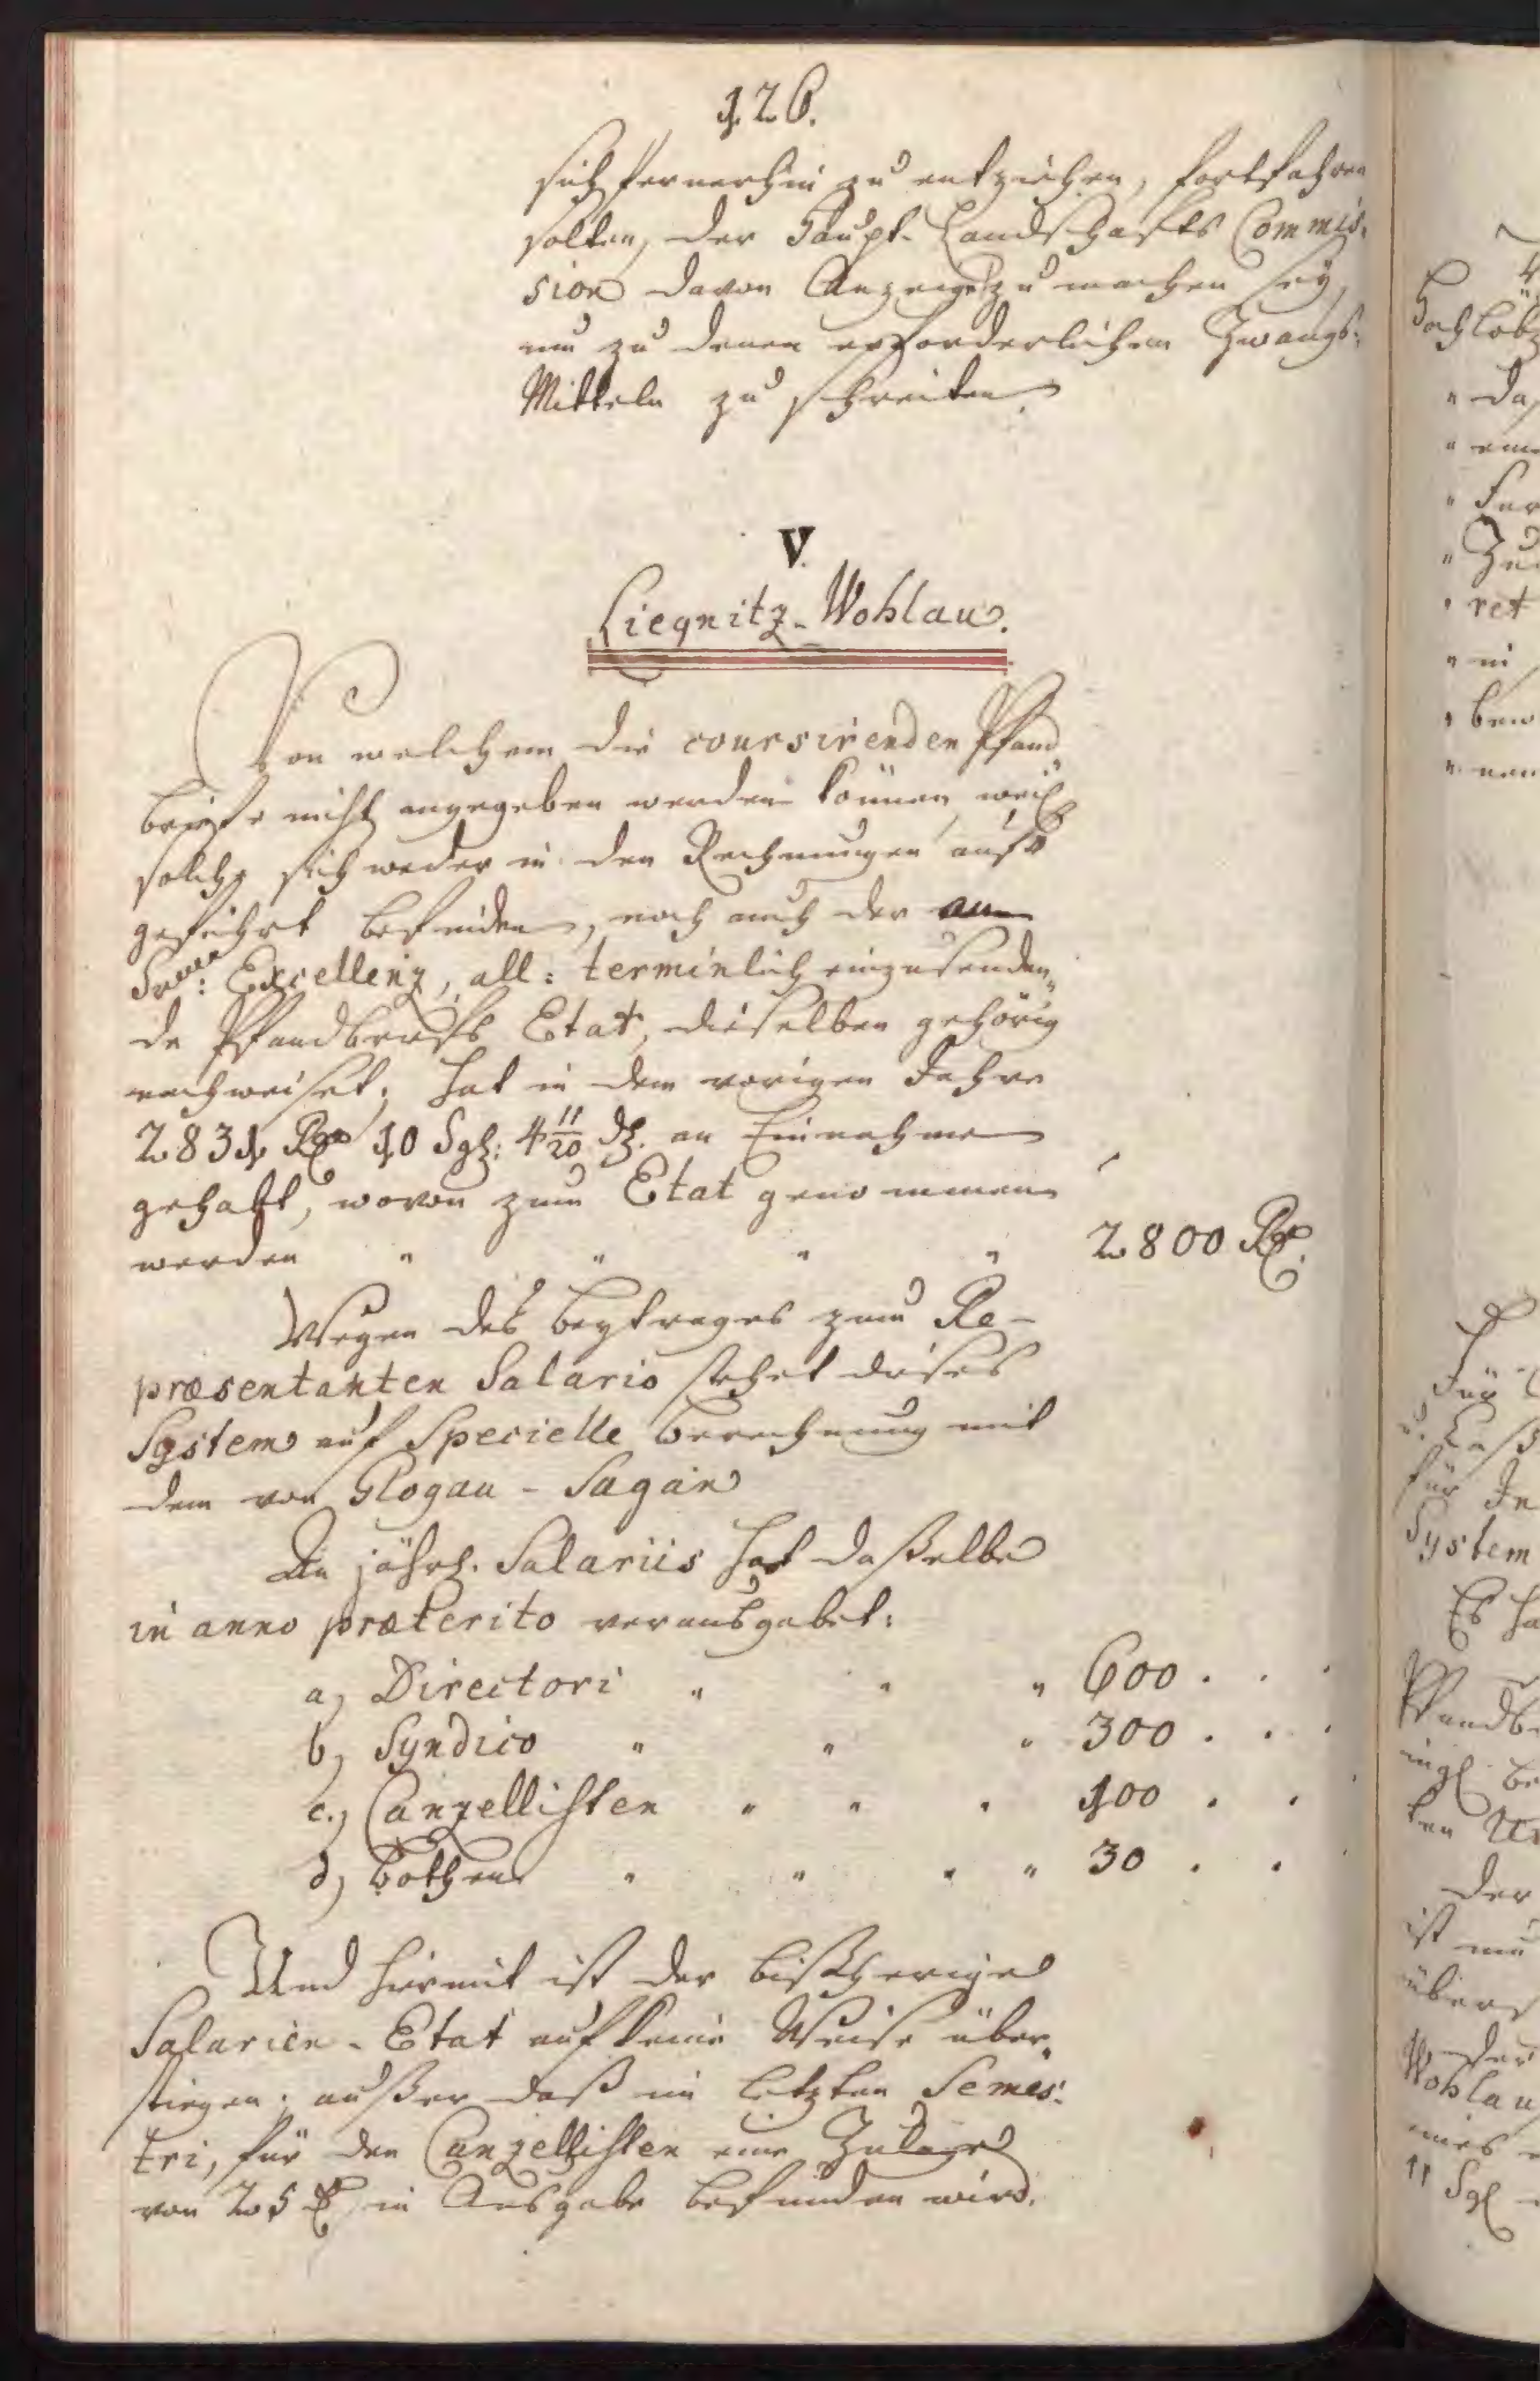 126.
sich fernerhin zu entziehen, fortfahren
solten, der Haupt-Landschafts Commis-
sion davon Anzeige zu machen sey,
um zu denen erforderlichen Zwangs-
Mitteln zu schreiten.
V.
Liegnitz-Wohlau.
Von welchem die coursirenden Pfand
briefe nicht angegeben werden können, weil
solche sich weder in den Rechnungen auf
geführt befinden, noch auch der an
Excellenz, all: terminlich einzusenden
de Pfandbriefs Etat, dieselben gehörig
nachweiset; hat in dem vorigen Jahre
2831 Rth 10 Sgl: 4 11/20 d. an Einnahme
gehabt, wovon zum Etat genommen
werden " " " " 2800 Rth.
Wegen des Beytrages zum Re-
præsentanten Salario stehet dieses
System auf Specielle Berechnung mit
dem von Glogau-Sagan
An jährl. Salariis hat daßelbe
in anno præterito verausgabet:
a, Directori " " " 600 . . .
b, Syndico " " " 300 . . .
c., Canzellisten " " " 100 . . .
d, Bothen " " " " 30 . . .
Und hiermit ist der bißherige
Salarien-Etat auf keine Weise über
stiegen; außer daß im letzten Semes-
tri, für den Canzellisten eine Zulage
von 25 Rth in Ausgabe befunden wird.
Hochlöb
" da
" ein
" Zu
" ret
" in
" nen
Für
für In
System
Es ha
Pfandb
ingl. be
ten Ur
Der
ist nu
übers
Wohlau
eines
11 Sgl